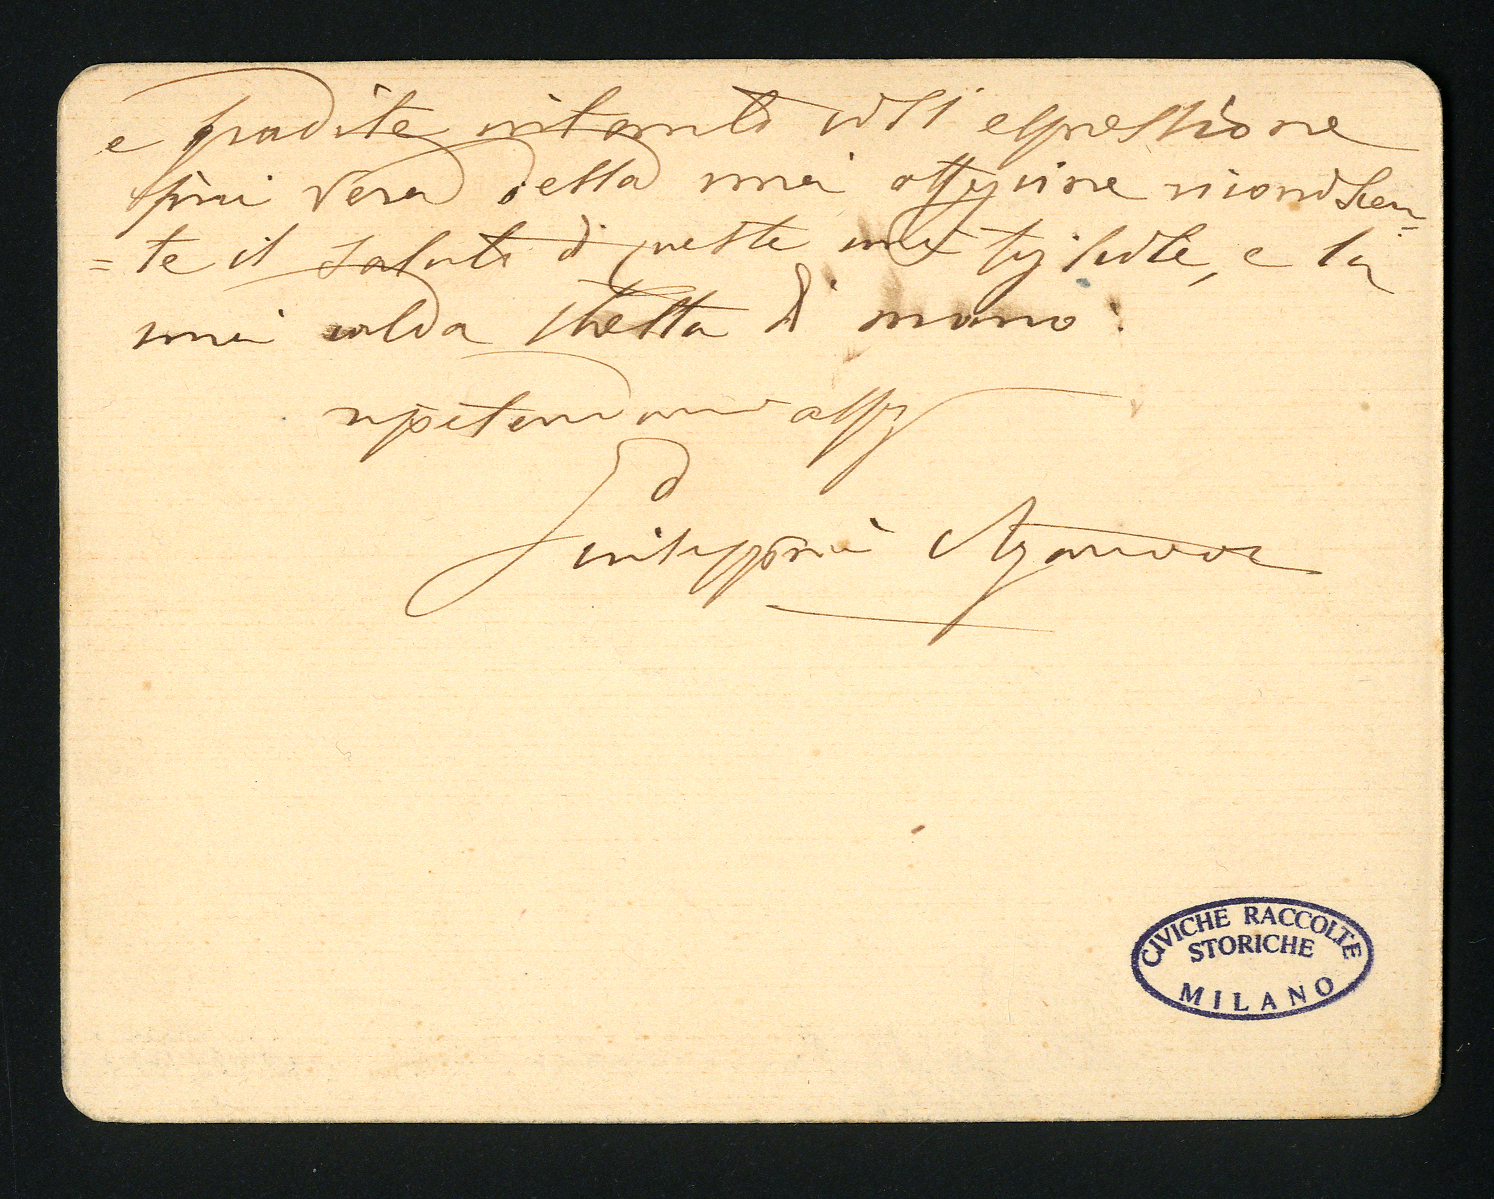 e gradite intanto coll' espressione
più vera della mia affezione riconoscen-
=te il saluto di queste mie figliole, e la
mia calda stretta di mano.
ripetendomi affz
Giuseppina
CIVICHE RACCOLTE
STORICHE
MILANO